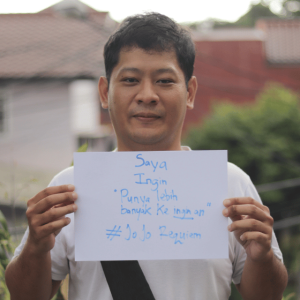 Saya
Ingin
"Punya lebih
banyak ke inginan"
# Jo Jo